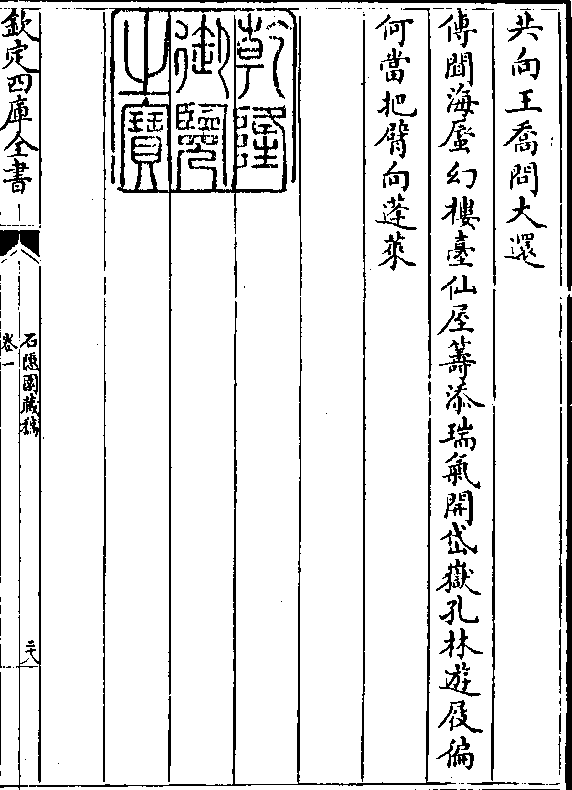 共向王喬問大還
傳聞海蜃幻樓臺仙屋籌添瑞氣開岱嶽孔林遊屐徧
何當把臂向蓬萊
乾隆御覽之寶
欽定四庫全書
石隱園藏稿
卷一
二十八